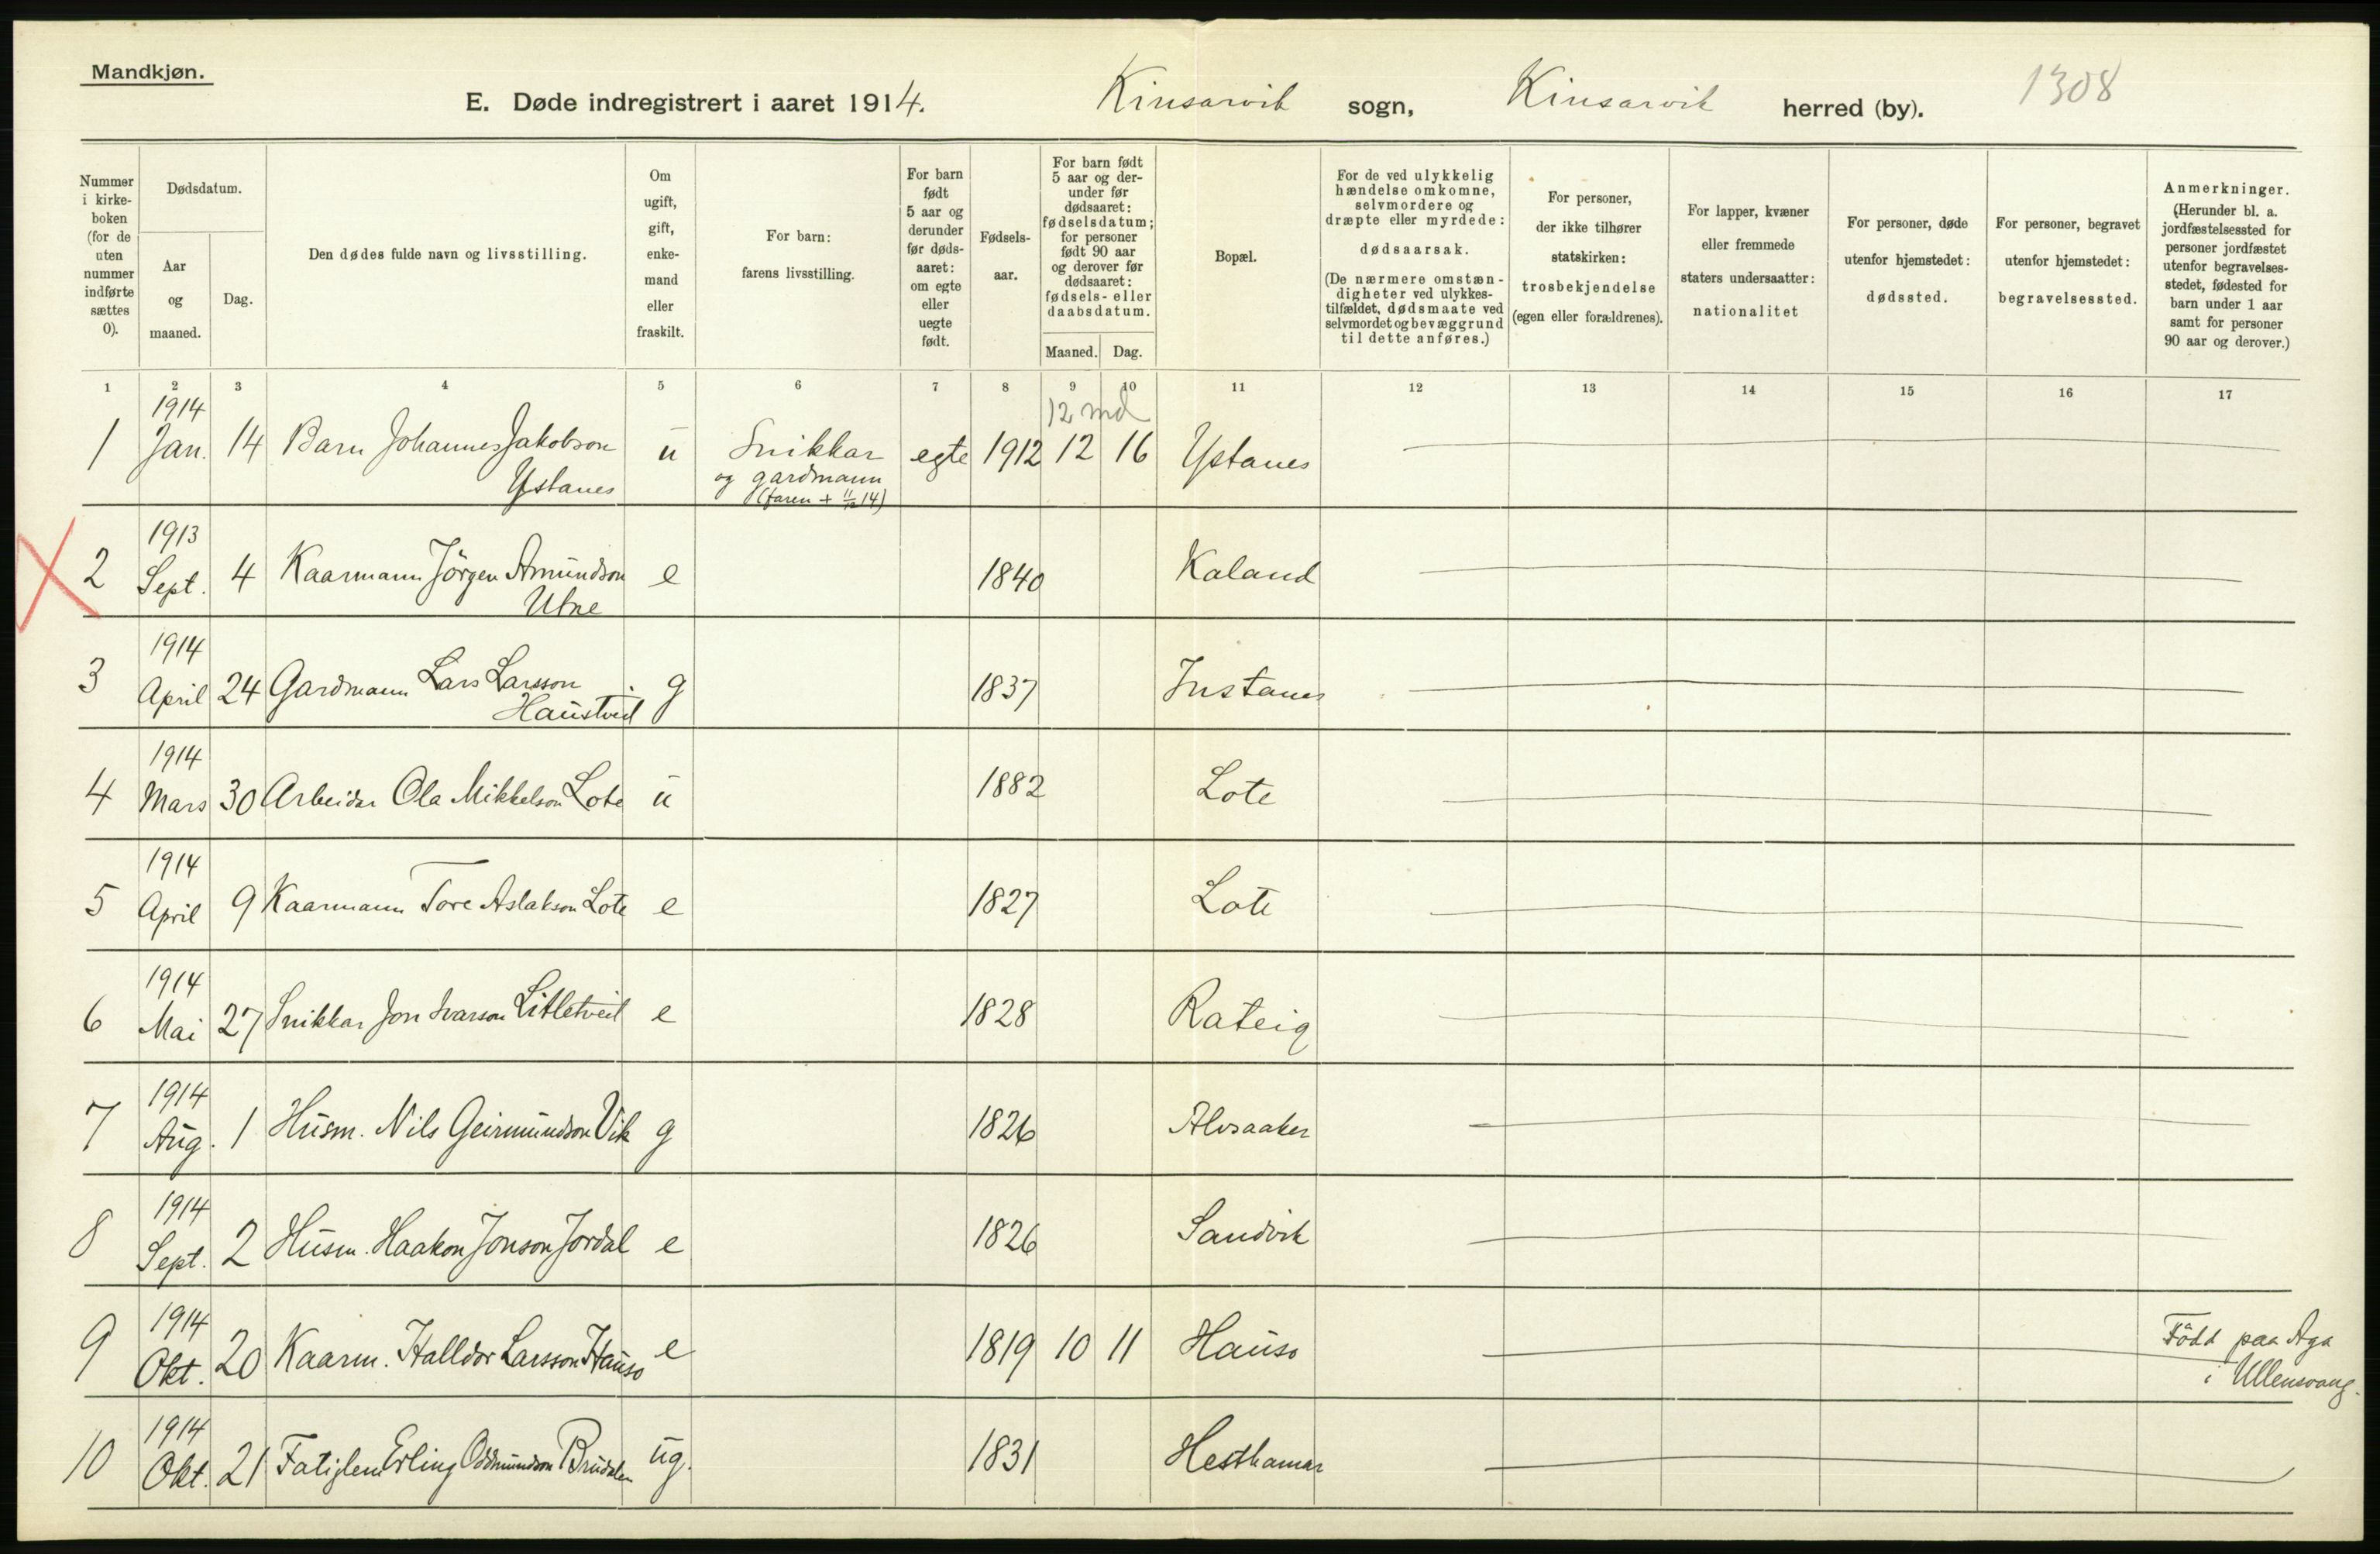 Mandkjøn.
E. Døde indregistrert i aaret 1914. Kinsarvik sogn, Kinsarvik herred (by). 1308
Nummer i kirke-boken (for de uten nummer indførte sættes 0).
Dødsdatum.
Aar og maaned.
Dag.
Den dødes fulde navn og livsstilling.
Om ugift, gift, enke-mand eller fraskilt.
For barn: farens livsstilling.
For barn født 5 aar og derunder før døds-aaret: om egte eller uegte født.
Fødsels-aar.
For barn født 5 aar og der-under før dødsaaret: fødselsdatum; for personer født 90 aar og derover før dødsaaret: fødsels- eller daabsdatum.
Maaned. Dag.
Bopæl.
For de ved ulykkelig hændelse omkomne, selvmordere og dræpte eller myrdede: dødsaarsak. (De nærmere omstæn-digheter ved ulykkes-tilfældet, dødsmaate ved selvmordet og bevæggrund til dette anføres.)
For personer, der ikke tilhører statskirken: trosbekjendelse (egen eller forældrenes).
For lapper, kvæner eller fremmede staters undersaatter: nationalitet
For personer, døde utenfor hjemstedet: dødssted.
For personer, begravet utenfor hjemstedet: begravelsessted.
Anmerkninger. (Herunder bl. a. jordfæstelsessted for personer jordfæstet utenfor begravelses-stedet, fødested for barn under 1 aar samt for personer 90 aar og derover.)
1 2 3 4 5 6 7 8 9 10 11 12 13 14 15 16 17
1914 12 md
1 Jan. 14 Barn Johannes Jakobson u Snikkar egte 1912 12 16 Ystanes
Ystanes og gardmann
(faren + 11/12 14)
1913
2 Sept. 4 Kaarmann Jörgen Amundson e 1840 Kaland
Utne
1914
3 April 24 Gardmann Lars Larsson g 1837 Instanes
Haustveit
1914
4 Mars 30 Arbeidar Ola Mikkelson Lote u 1882 Lote
1914
5 April 9 Kaarmann Tore Aslakson Lote e 1827 Lote
1914
6 Mai 27 Snikkar Jon Ivarson Litletveit e 1828 Rateig
1914
7 Aug. 1 Husm. Nils Geirmundson Vik g 1826 Alvsaaker
1914
8 Sept. 2 Husm. Haakon Jonson Jordal e 1826 Sandvik
1914
9 Okt. 20 Kaarm. Halldor Larsson Hauso e 1819 10 11 Hauso Född paa Aga
i Ullensvang.
1914
10 Okt. 21 Fatiglem Erling Oddmundson Brudalen ug. 1831 Hesthamar